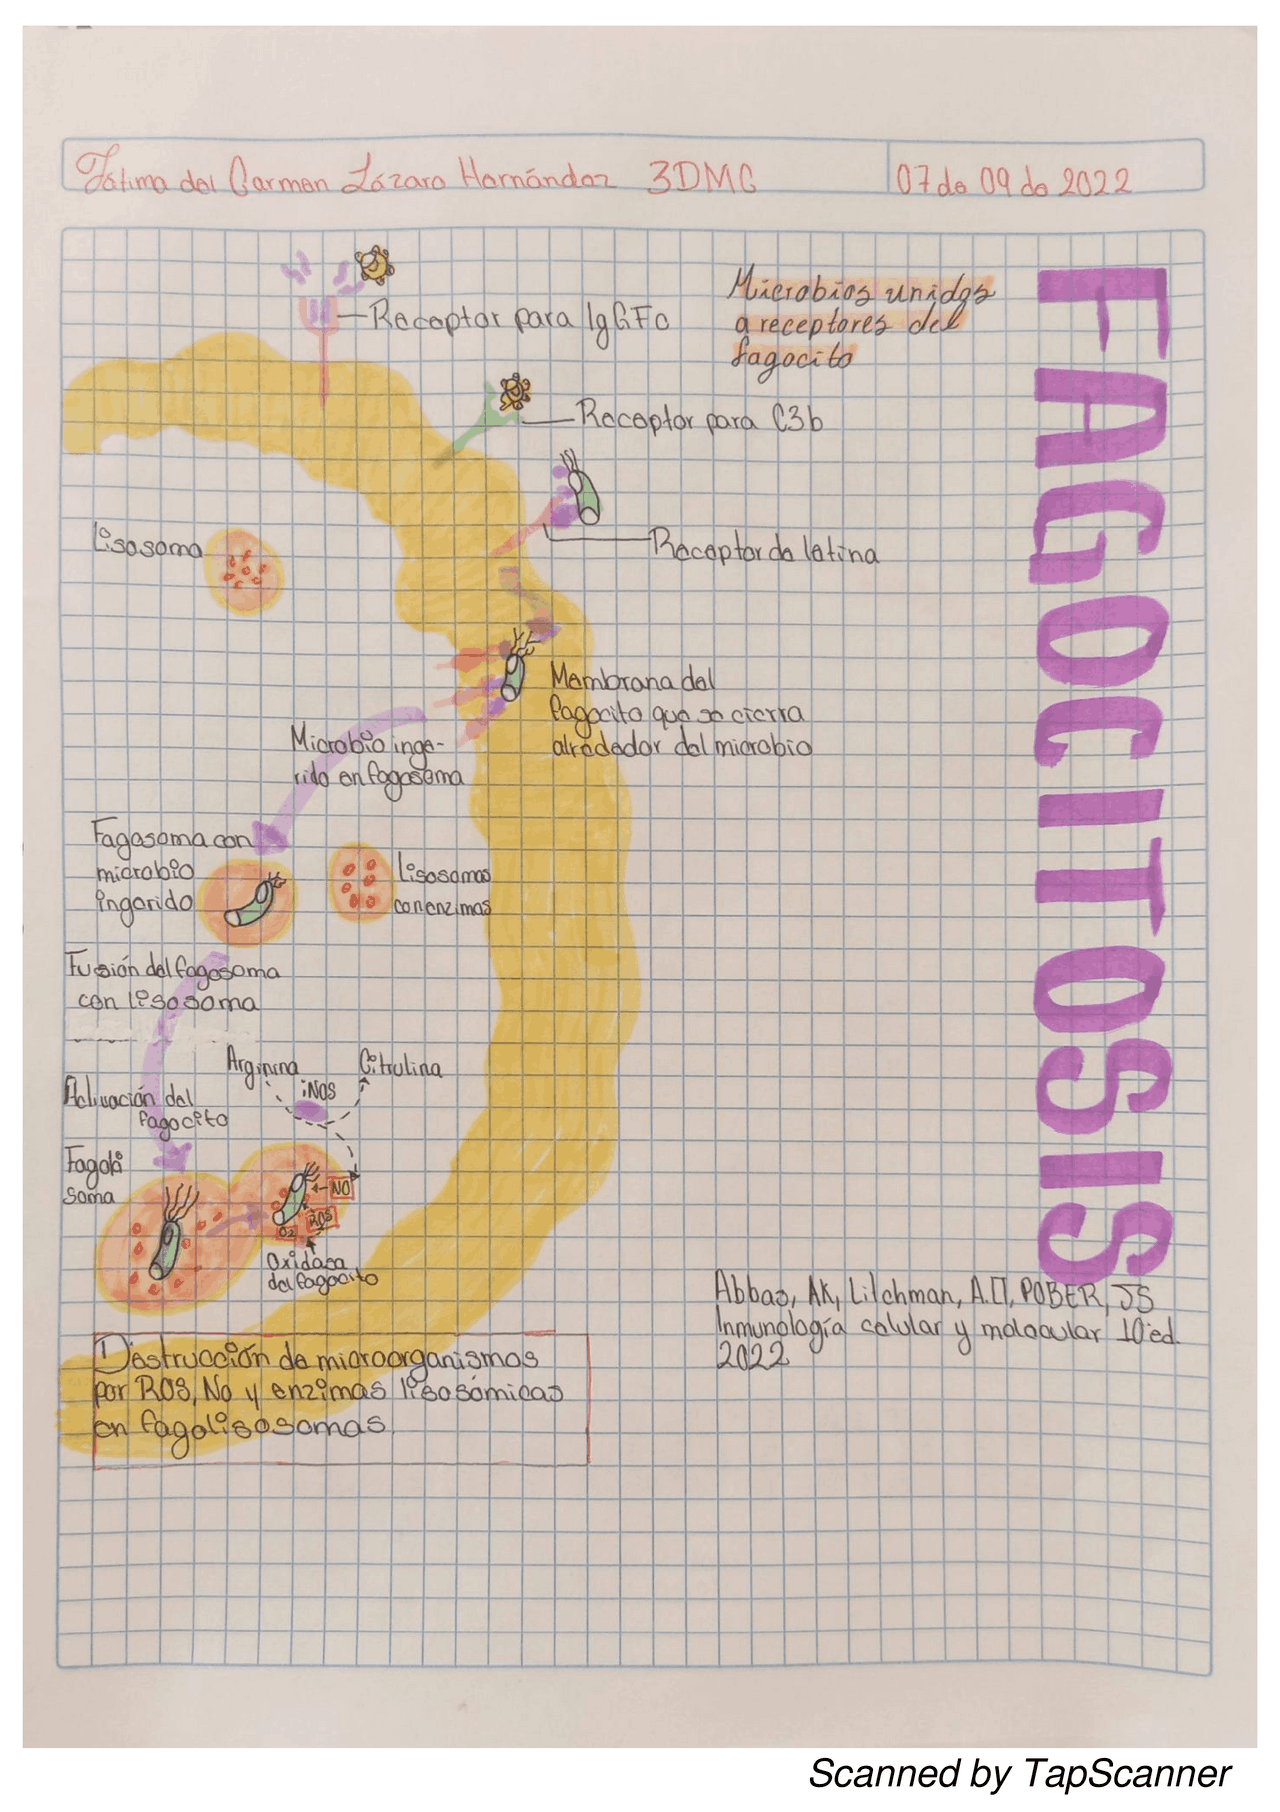 Fátima del Carmen Lázaro Hernández 3DMG
07 de 09 de 2022
FAGOCITOSIS
Microbios unidos
a receptores del
fagocito
Receptor para IgGFc
Receptor para C3b
Receptor de latina
Lisosoma
Membrana del
fagocito que se cierra
alrededor del microbio
Microbio inge-
rido en fagosoma
Fagosoma con
microbio
ingerido
Lisosomas
con enzimas
Fusión del fagosoma
con lisosoma
Arginina
iNOS
Citrulina
Activación del
fagocito
Fagoli
soma
NO
ROS
O2
Oxidasa
del fagocito
Destrucción de microorganismos
por ROS, No y enzimas lisosómicas
en fagolisosomas.
Abbas, AK, Litchman, A.H, POBER, JS
Inmunología celular y molecular 10 ed.
2022
Scanned by TapScanner